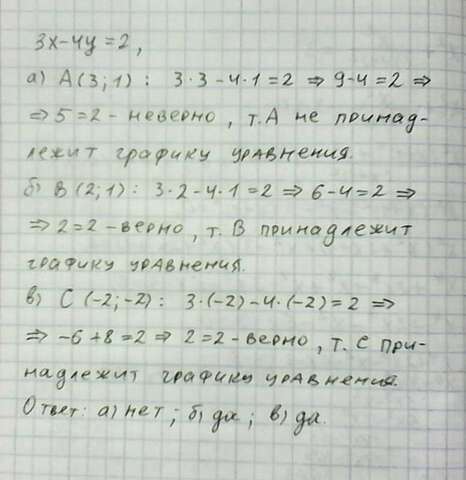 3x-4y=2,
а) A(3;1): 3·3-4·1=2 ⇒ 9-4=2 ⇒
⇒ 5=2 - неверно, т.А не принад-
лежит графику уравнения.
б) B(2;1): 3·2-4·1=2 ⇒ 6-4=2 ⇒
⇒ 2=2 - верно, т. В принадлежит
графику уравнения.
в) C(-2;-2): 3·(-2)-4·(-2)=2 ⇒
⇒ -6+8=2 ⇒ 2=2 - верно, т. С при-
надлежит графику уравнения.
Ответ: а) нет; б) да; в) да.